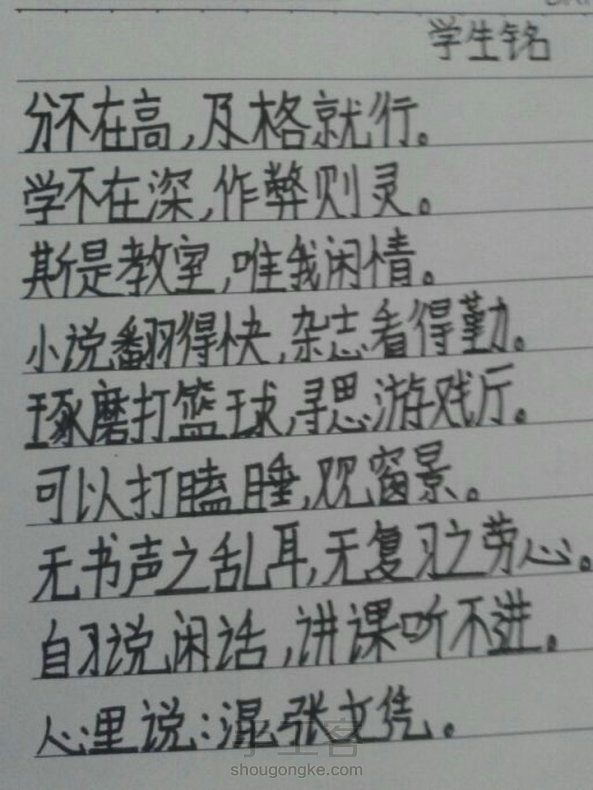 学生铭
分不在高,及格就行。
学不在深,作弊则灵。
斯是教室,唯我闲情。
小说翻得快,杂志看得勤。
琢磨打篮球,寻思游戏厅。
可以打瞌睡,观窗景。
无书声之乱耳,无复习之劳心。
自习说闲话,讲课听不进。
心里说:混张文凭。
手工客
shougongke.com